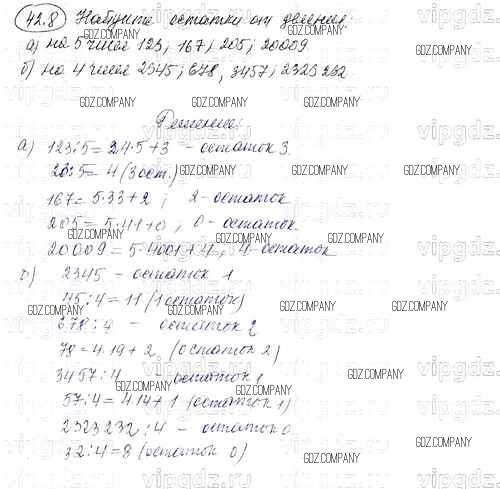 42.8 Найдите остатки от деления:
а) на 5 чисел 123; 167; 205; 20009
б) на 4 чисел 2345; 678, 3457; 2323232
Решение:
а) 123:5=24·5+3 - остаток 3.
23:5=4 (3 ост.)
167=5·33+2; 2-остаток
205=5·41+0; 0-остаток.
20009=5·4001+4; 4-остаток
б) 2345 - остаток 1
45:4=11 (1 остаток)
678:4 - остаток 2
78=4·19+2 (остаток 2)
3457:4 - остаток 1
57:4=4·14+1 (остаток 1)
2323232:4 - остаток 0
32:4=8 (остаток 0)